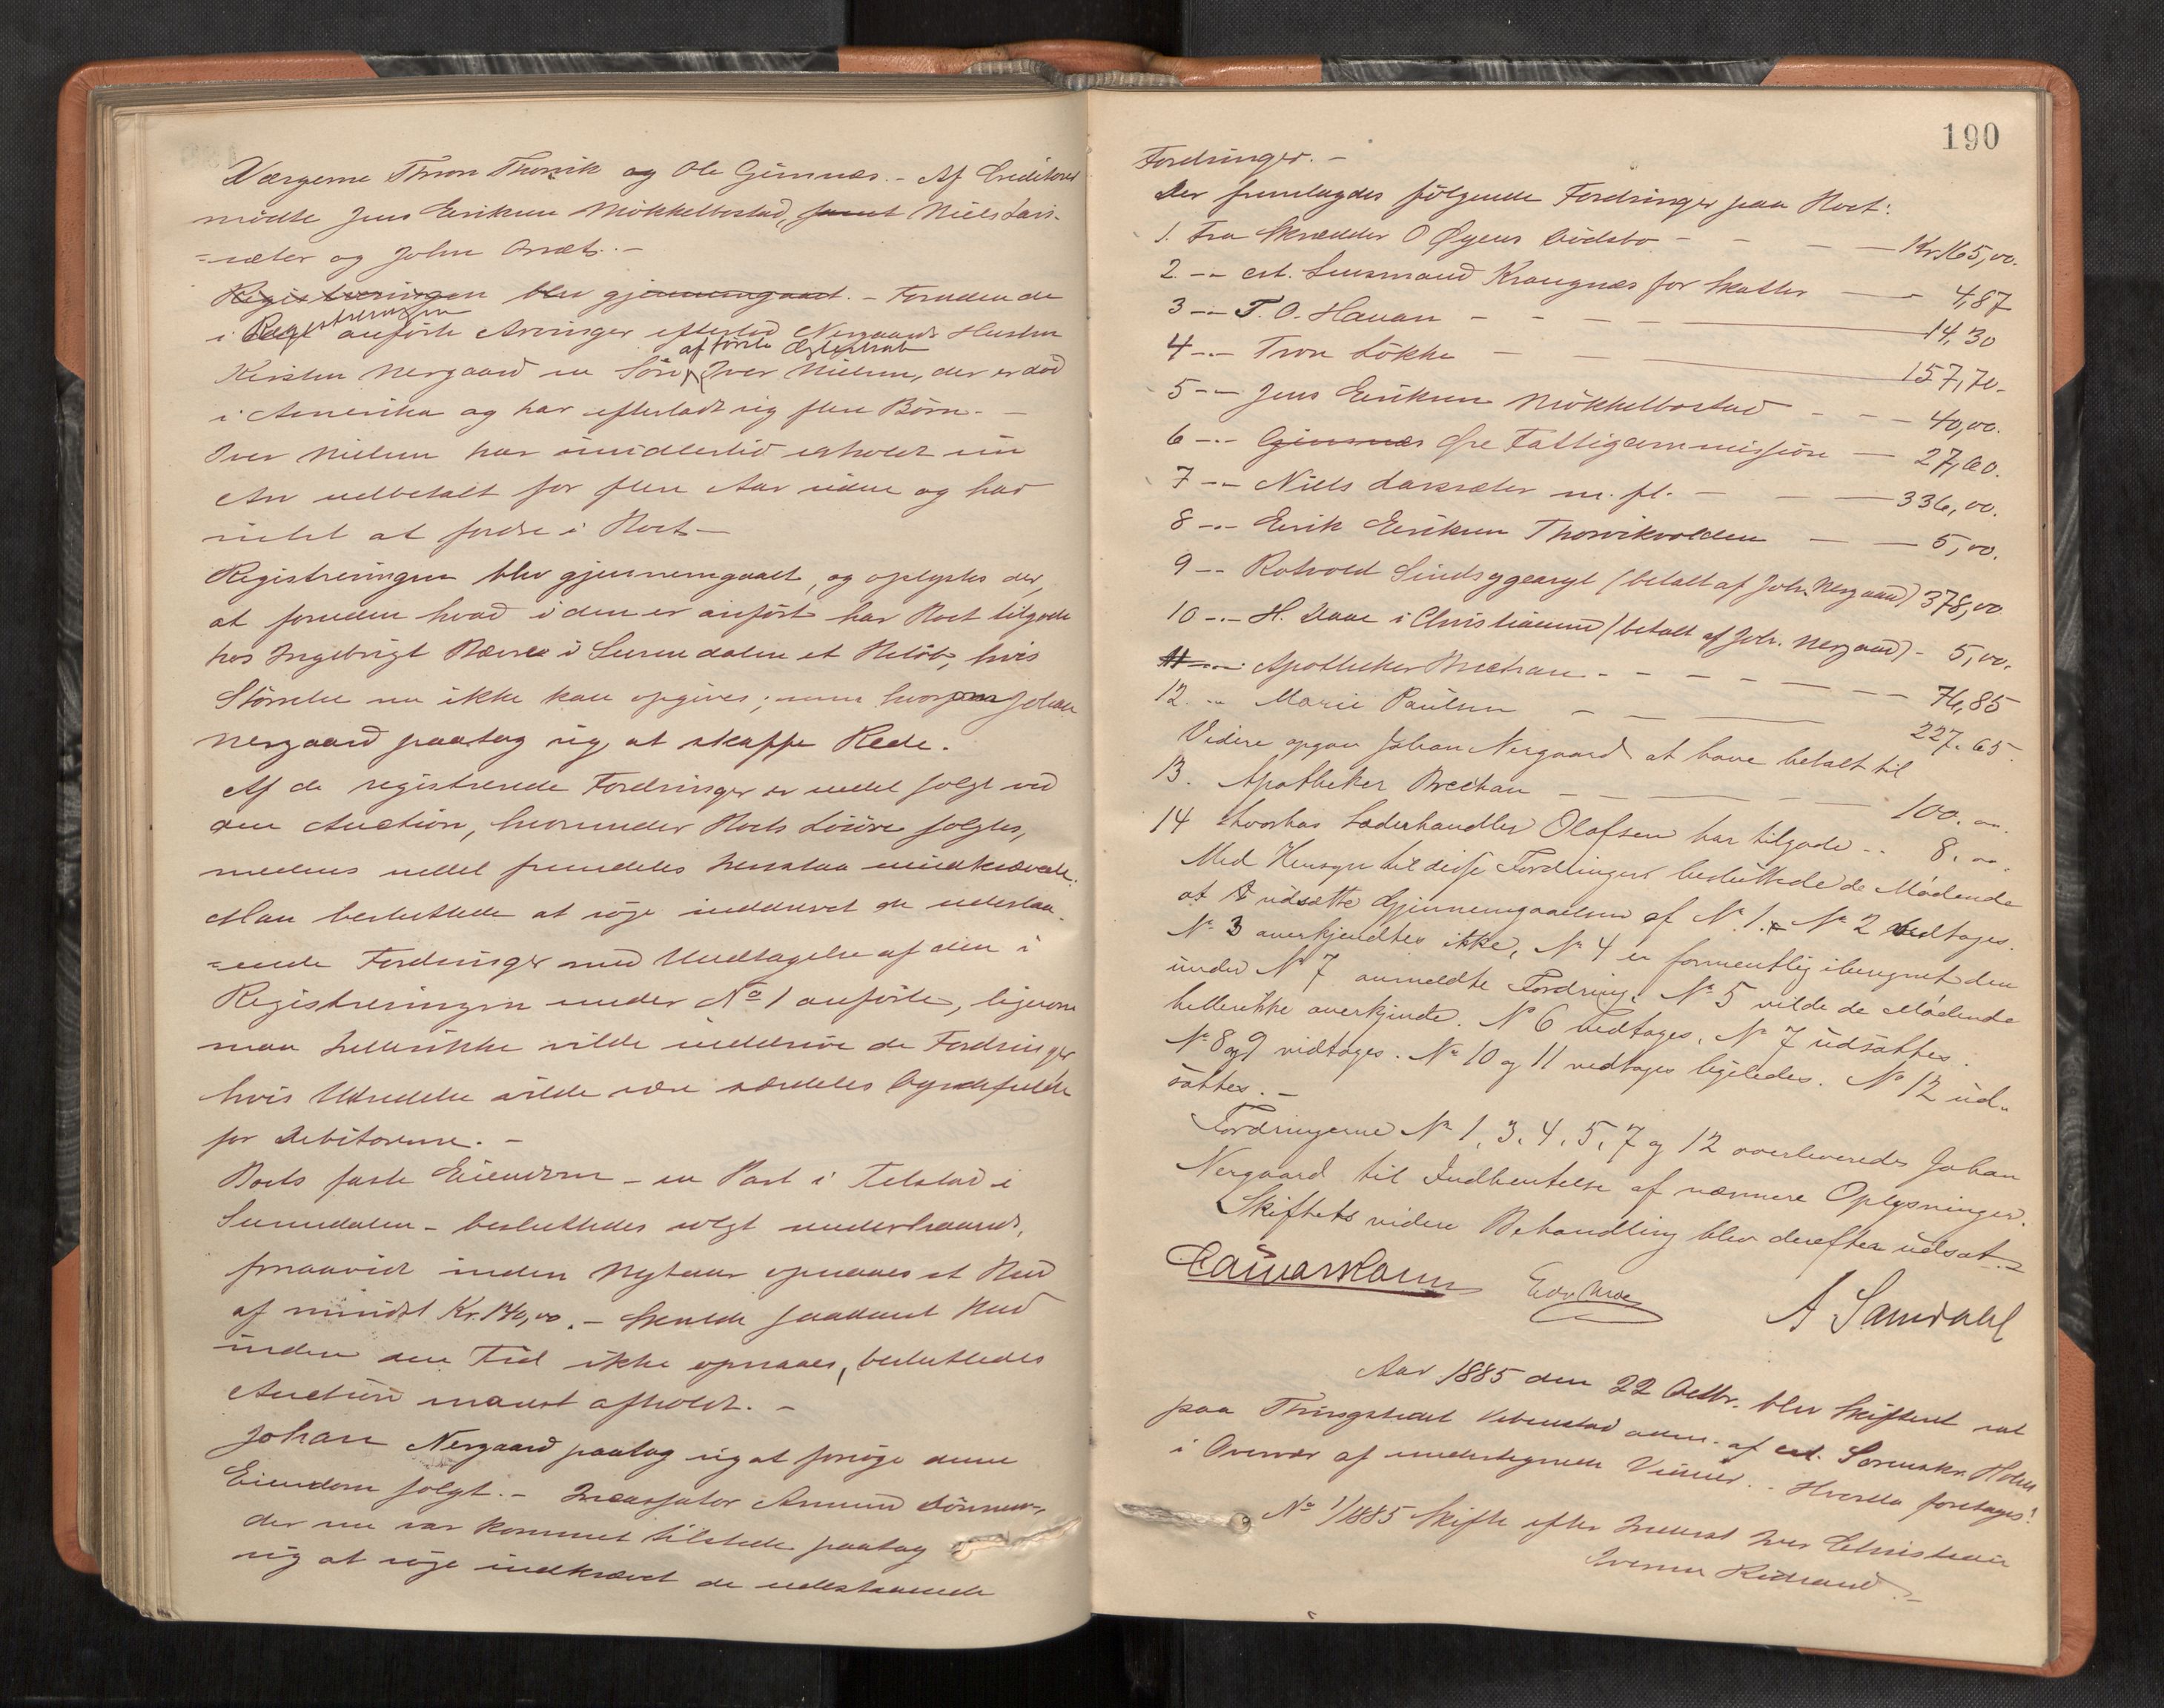 Værgerne Thron Thorvik og Ole Gimnæs. - Af Creditorer
mødte Jens Eriksen Mökkelbostad, samt Niels Lars-
=sæter og John Orsæt. -
Registreringen blev gjennemgaaet. - Foruden de
i Registreringen anførte Arvinger efterlod Nergaards Hustru
Kirsten Nergaard en Sön af förste Ægteskab Iver Nielsen, der er död
i Amerika og har efterladt sig flere Börn. -
Iver Nielsen har imidlertid erholdt sin
Arv udbetalt for flere Aar siden og har
intet at fordre i Boet. -
Registreringen blev gjennemgaaet, og oplystes der,
at foruden hvad i den er anfört har Boet tilgode
hos Ingebrigt Bævre i Surendalen et Belöb, hvis
Störrelse nu ikke kan opgives; men hvorom Johan
Nergaard paatog sig at skaffe Rede.
Af de registrerede Fordringer er endel solgt ved
den Auction, hvorunder Boets Lösöre solgtes,
medens endel fremdeles henstaa uindkrævede.
Man besluttede at søge inddrevet de udestaa-
=ende Fordringer med Undtagelse af den i
Registreringen under No 1 anförte, ligesom
man hellerikke vilde inddrive de Fordringer
hvis Udredelse vilde være særdeles byrdefulde
for Debitorerne. -
Boets faste Eiendom - en Part i Telstad i
Surendalen - besluttedes solgt underhaanden,
forsaavidt inden Nytaar opnaaes et Bud
af mindst Kr. 140,00. - Skulde saadant Bud
inden den Tid ikke opnaaes, besluttedes
Auction derover afholdt. -
Johan Nergaard paatog sig at forsøge denne
Eiendom solgt. - Incassator Amund Lönseth,
der nu var kommet tilstede paatog
sig at søge indkrævet de udestaaende
190
Fordringer. -
Der fremlagdes følgende Fordringer paa Boet:
1. Fra Skrædder O Øyens Dödsbo - - - - Kr. 165,00.
2 -- cst. Lensmand Krangnæs for Skatter - - 4,87
3 -- T. O. Hauan - - - - 14,30
4 -- Tron Lökke - - 157,70-
5 -- Jens Eriksen Mökkelbostad - - - 40,00.
6 -- Gimnæs Øre Fattigcommission - 27,60.
7 -- Niels Larssæter m. fl. - - - 336,00.
8 -- Eirik Eiriksen Thorvikvolden - - 5,00.
9 -- Rotvold Sindsygeasyl (betalt af Joh. Nergaard) 378,00
10 -- H. Daae i Christianssund (betalt af Joh. Nergaard) - 5,00.
11 -- Apotheker Brechan - - - - - - - 76,85
12. -- Marie Paulsen - - 227.65.
Videre opgav Johan Nergaard at have betalt til
13. Apotheker Brechan - - - - 100. "
14 hvorhos Læderhandler Olafsen har tilgode -- 8. "
Med Hensyn til disse Fordringer besluttede de Mødende
at udsætte Gjennemgaaelsen af No 1. No 2 vedtages.
No 3 anerkjendtes ikke, No 4 er formentlig ibenegnet den
under No 7 anmeldte Fordring. No 5 vilde de Mødende
hellerikke anerkjende. No 6 vedtages, No 7 udsattes.
No 8 og 9 vedtages. No 10 og 11 vedtages ligeledes. No 12 ud-
sattes. -
Fordringerne No 1, 3, 4, 5, 7 og 12 overleveredes Johan
Nergaard til Indhentelse af nærmere Oplysninger.
Skiftets videre Behandling blev derefter udsat. -
A Samdahl
Aar 1885 den 22 Octbr. blev Skifteret sat
paa Thingstedet Vebenstad adm. af cst. Sorenskr. Holm
i Overvær af undertegnede Vidner. - Hvorda foretages:
No 1/1885 Skifte efter Inderst Iver Christian
Iversen Rødsand. -